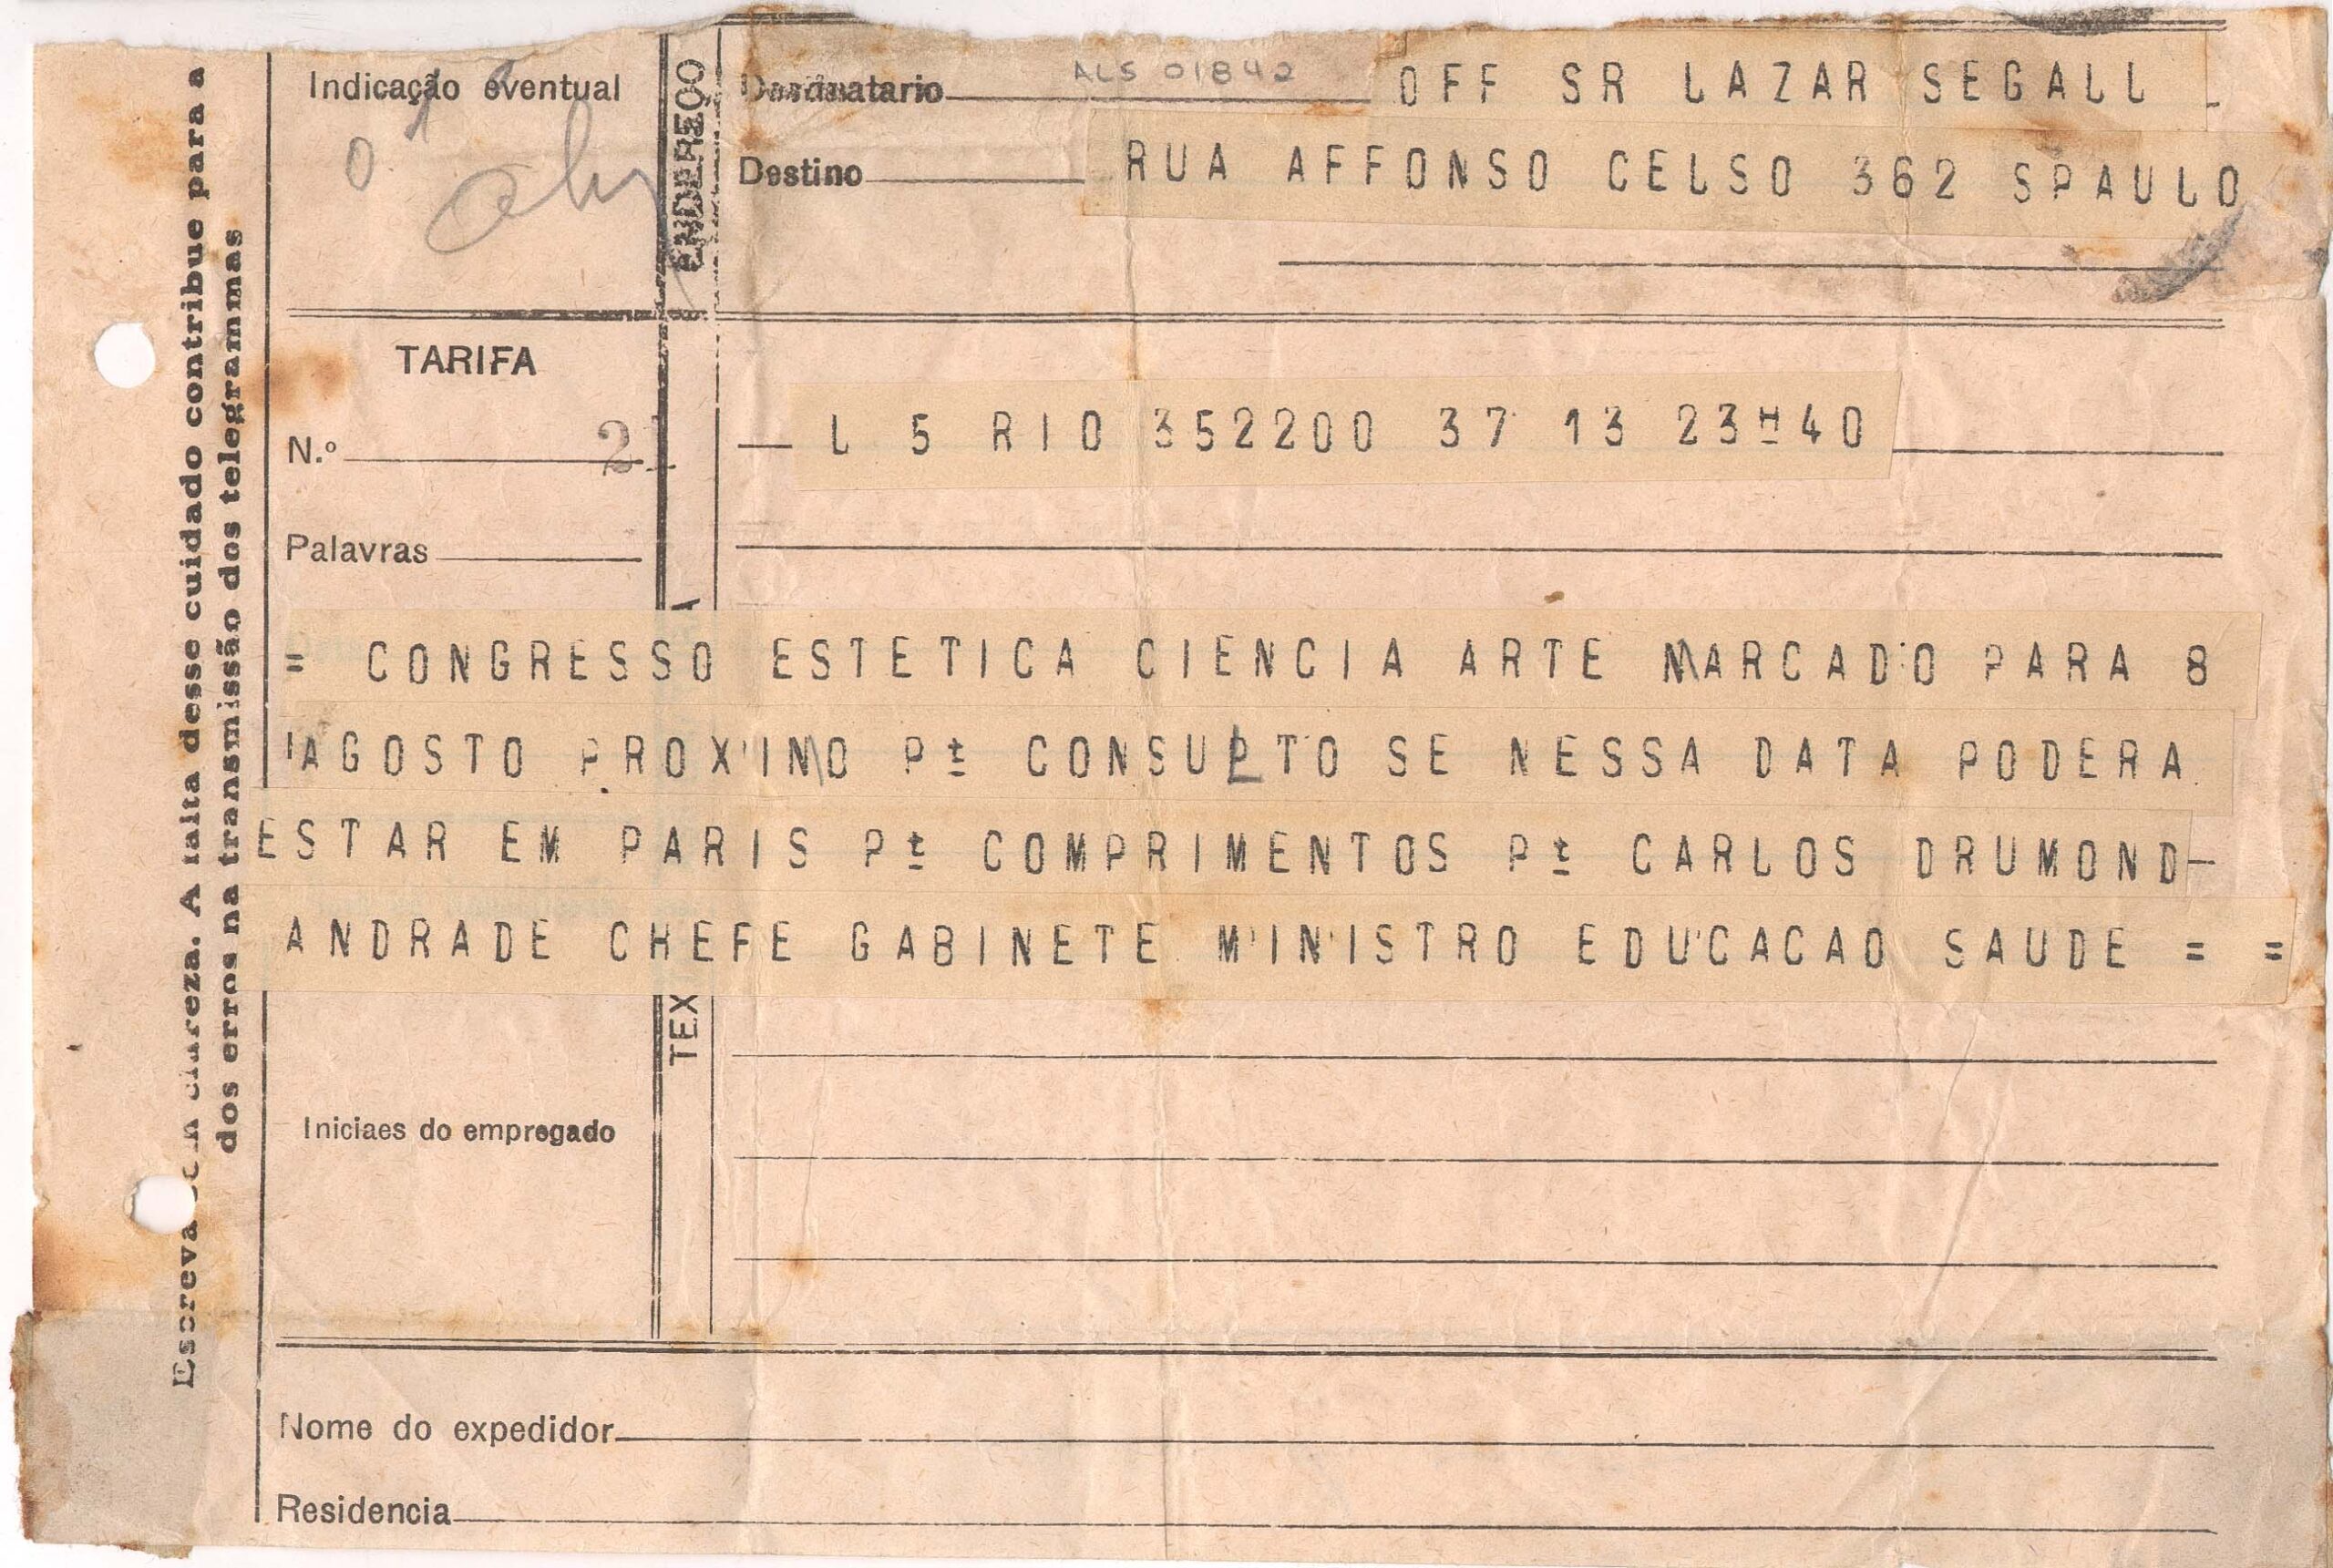 Escreva com clareza. A falta desse cuidado contribue para a
dos erros na transmissão dos telegrammas
Indicação eventual
ENDEREÇO
Destinatario
ALS 01842
OFF SR LAZAR SEGALL
Destino
RUA AFFONSO CELSO 362 SPAULO
TARIFA
N.º 21
L 5 RIO 352200 37 13 23H40
Palavras
= CONGRESSO ESTETICA CIENCIA ARTE MARCADO PARA 8
AGOSTO PROXIMO Pt CONSULTO SE NESSA DATA PODERA
ESTAR EM PARIS Pt COMPRIMENTOS Pt CARLOS DRUMOND-
ANDRADE CHEFE GABINETE MINISTRO EDUCACAO SAUDE = =
TEX
Iniciaes do empregado
Nome do expedidor
Residencia